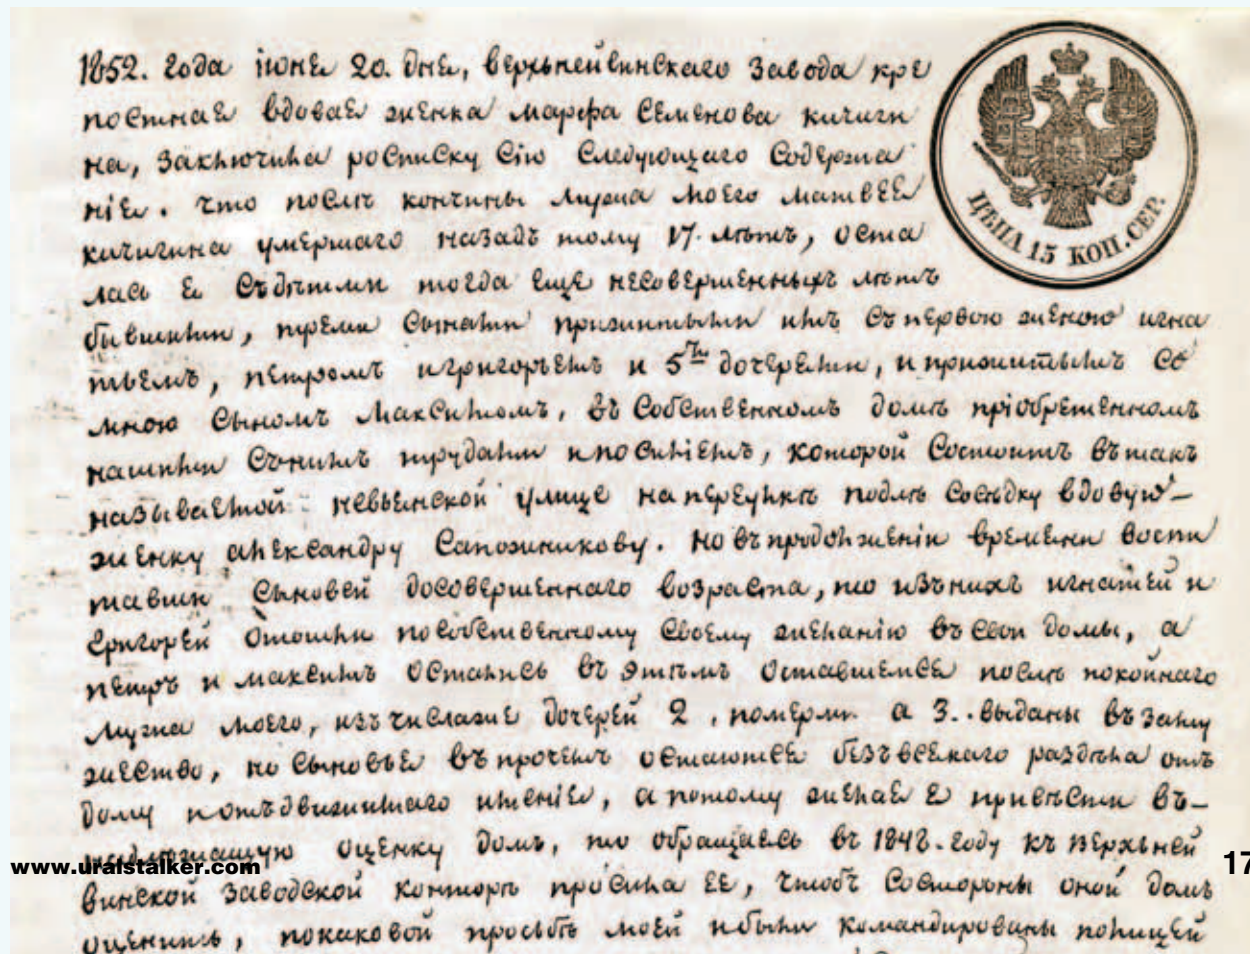 1852. года іюнѣ 20. дне, верхьнейвинскаго завода кре
постнае вдовае женка марфа Семенова кичиги
на, заключила росписку сію следующаго содержа
ніе. что послѣ кончины мужа моего матвее
кичигина умершаго назадъ тому 17. лѣтъ, оста
лась е съдѣтми тогда еще несовершенныхъ лѣтъ
бывшими, тремя сынами прижитыми имъ съпервою женою игна
тьемъ, петромъ игригорьемъ и 5ти дочерями, и прижитымъ со
мною сыномъ Максимомъ, въ собственномъ домѣ пріобретенномъ
нашими сънимъ трудами ипосиліемъ, которой состоитъ втакъ
называемой невьенской улице напереулкѣ подлѣ соседку вдовую
женку александру Сапожникову. но въпродолженіи времени воспи
тавши сыновей досовершеннаго возраста, то изънихъ игнатей и
григорей отошли пособственному своему желанію въсвои домы, а
петръ и максимъ остались въ этомъ оставшемсе послѣ покойнаго
мужа моего, изъ числаже дочерей 2, померли а 3.. выданы въ заму
жество, но сыновье въпрочемъ остаютсе безъвсекаго раздѣла отъ
дому иотъдвижимаго имѣніе, а потому желае е привѣсти въ
оценку домъ, то обращаясь въ 1848. году къ верхьней
винской заводской конторѣ просила ее, чтобъ состороны оной домъ
оценить, покаковой просьбѣ моей ибыли командированы полицей
ЦѢНА 15 КОП. СЕР.
www.uralstalker.com
17